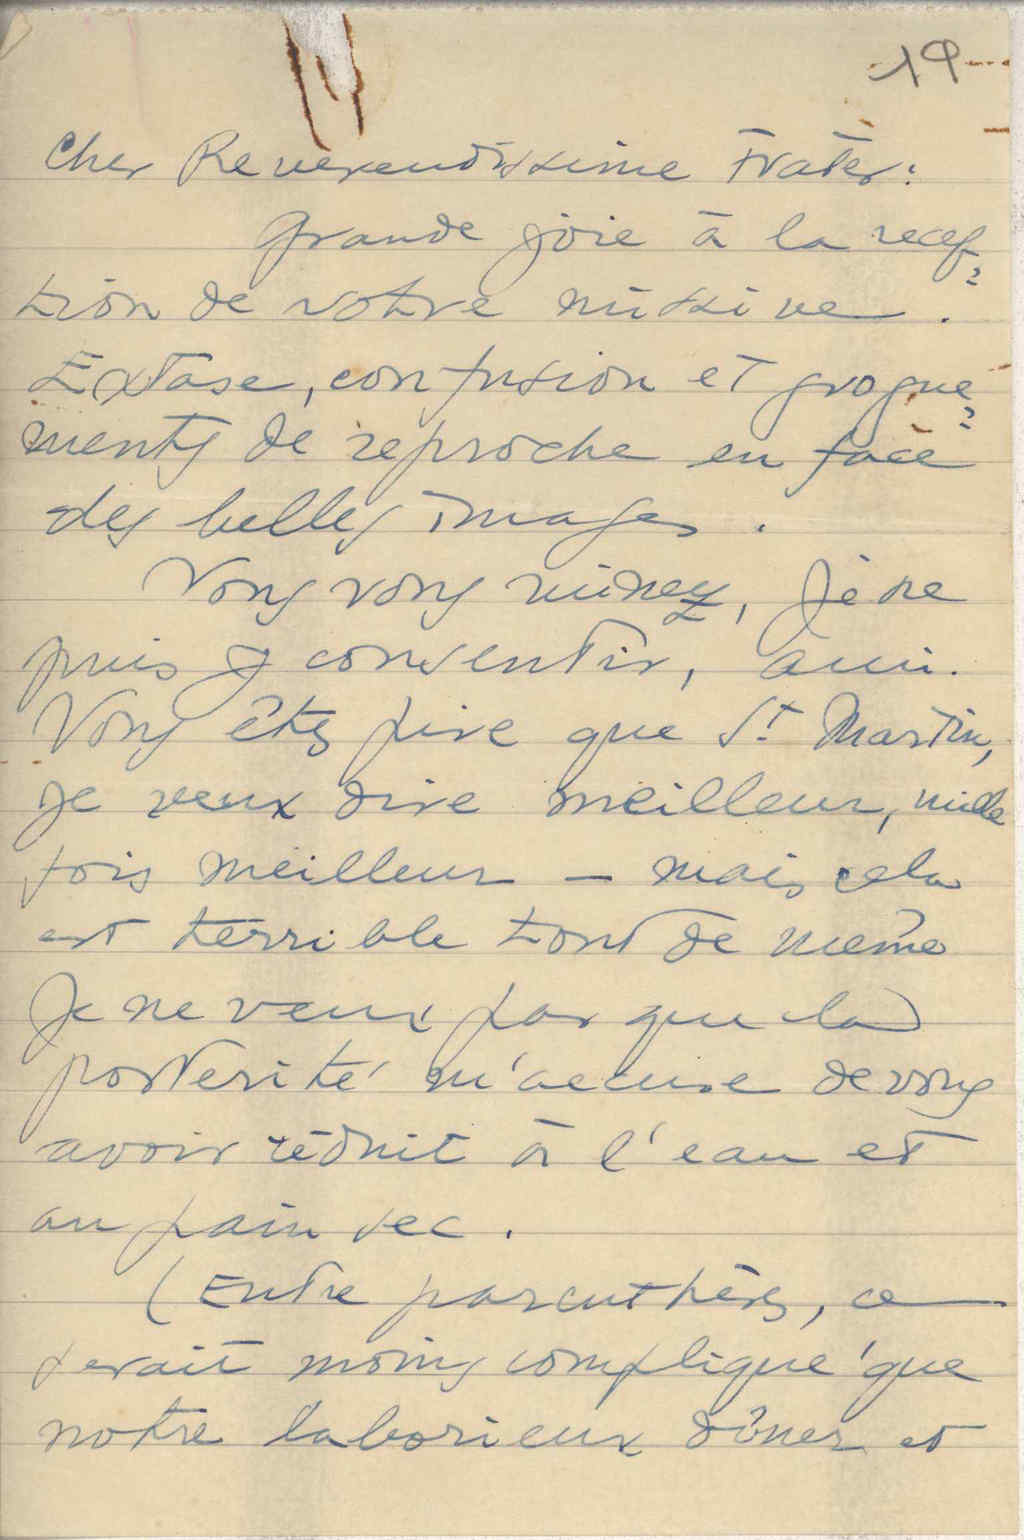 19
Cher Reverendissime Frater:
Grande joie à la recep=
tion de votre missive.
Extase, confusion et grogne=
ments de reproche en face
des belles images.
Vous vous ruinez, je ne
puis y consentir, ami.
Vous êtes pire que St Martin,
je veux dire meilleur, mille
fois meilleur — mais cela
est terrible tout de même
Je ne veux pas que la
posterité m'accuse de vous
avoir réduit à l'eau et
au pain sec.
(Entre parenthèses, ce
serait moins compliqué que
notre laborieux dîner et